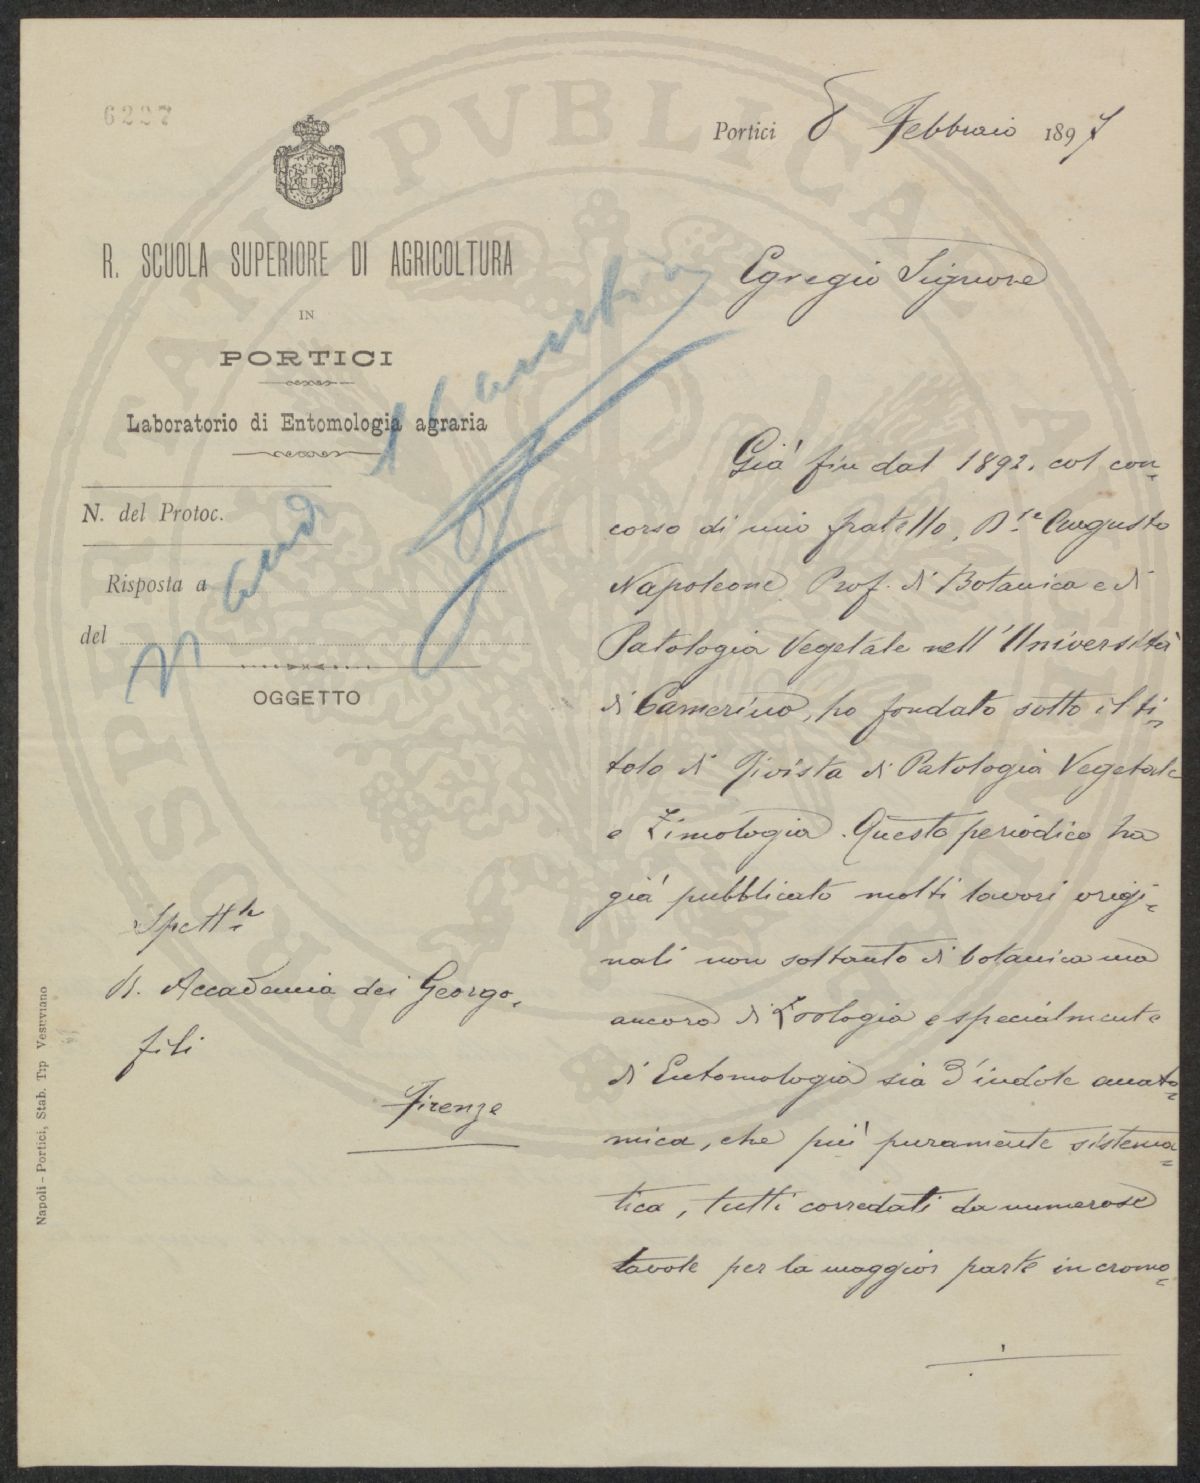 6227
Portici 8 Febbraio 1897
R. SCUOLA SUPERIORE DI AGRICOLTURA
IN
PORTICI
Laboratorio di Entomologia agraria
N. del Protoc.
Risposta a
del
OGGETTO
Egregio Signore
Già fin dal 1892. col con=
corso di mio fratello, Dre Augusto
Napoleone Prof. di Botanica e di
Patologia Vegetale nell'Università
di Camerino, ho fondato sotto il ti=
tolo di Rivista di Patologia Vegetale
e Zimologia. Questo periodico ha
già pubblicato molti lavori origi=
nali non soltanto di botanica ma
ancora di Zoologia e specialmente
di Entomologia sia d'indole anato=
mica, che più puramente sistema=
tica, tutti corredati da numerose
tavole per la maggior parte in cromo=
Spettle
R. Accademia dei Georgo=
fili
Firenze
Napoli - Portici, Stab. Tip Vesuviano